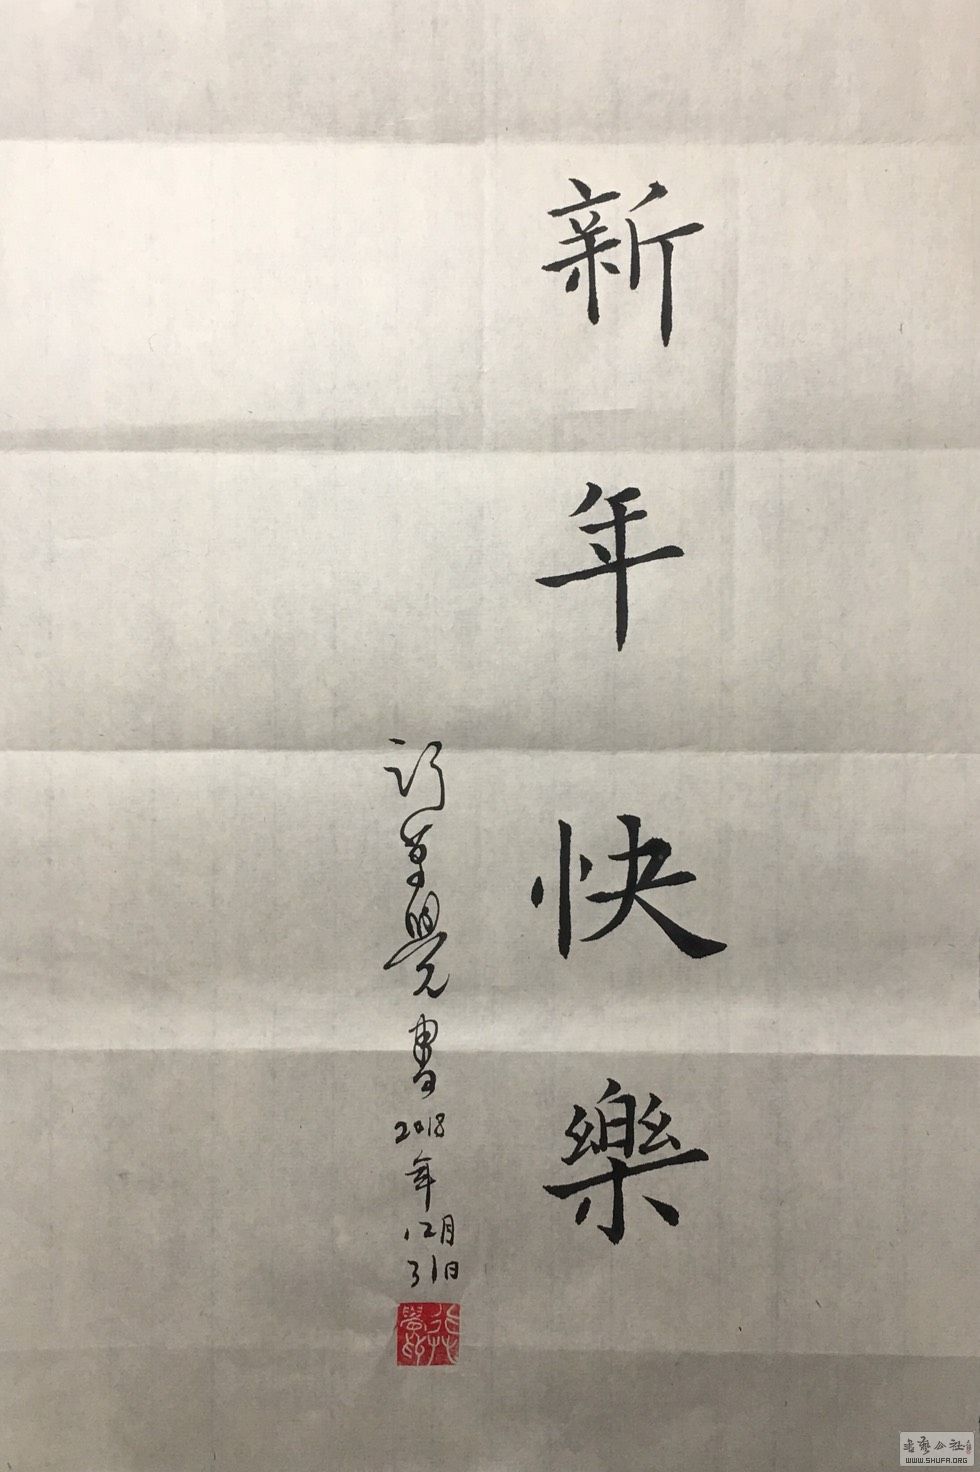 新年快樂
書
2018
年
12月
31日
WWW.SHUFA.ORG